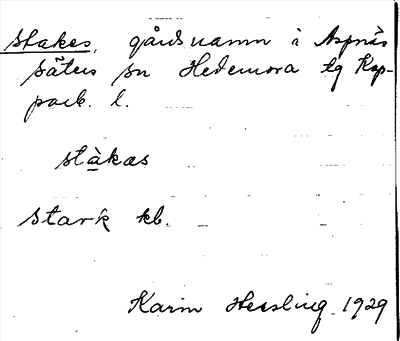 stakes, gårdsnamn i Aspnäs
säters sn Hedemora tg Kop-
parb. l.
stàkas
stark kb.
Karin Hessling 1929